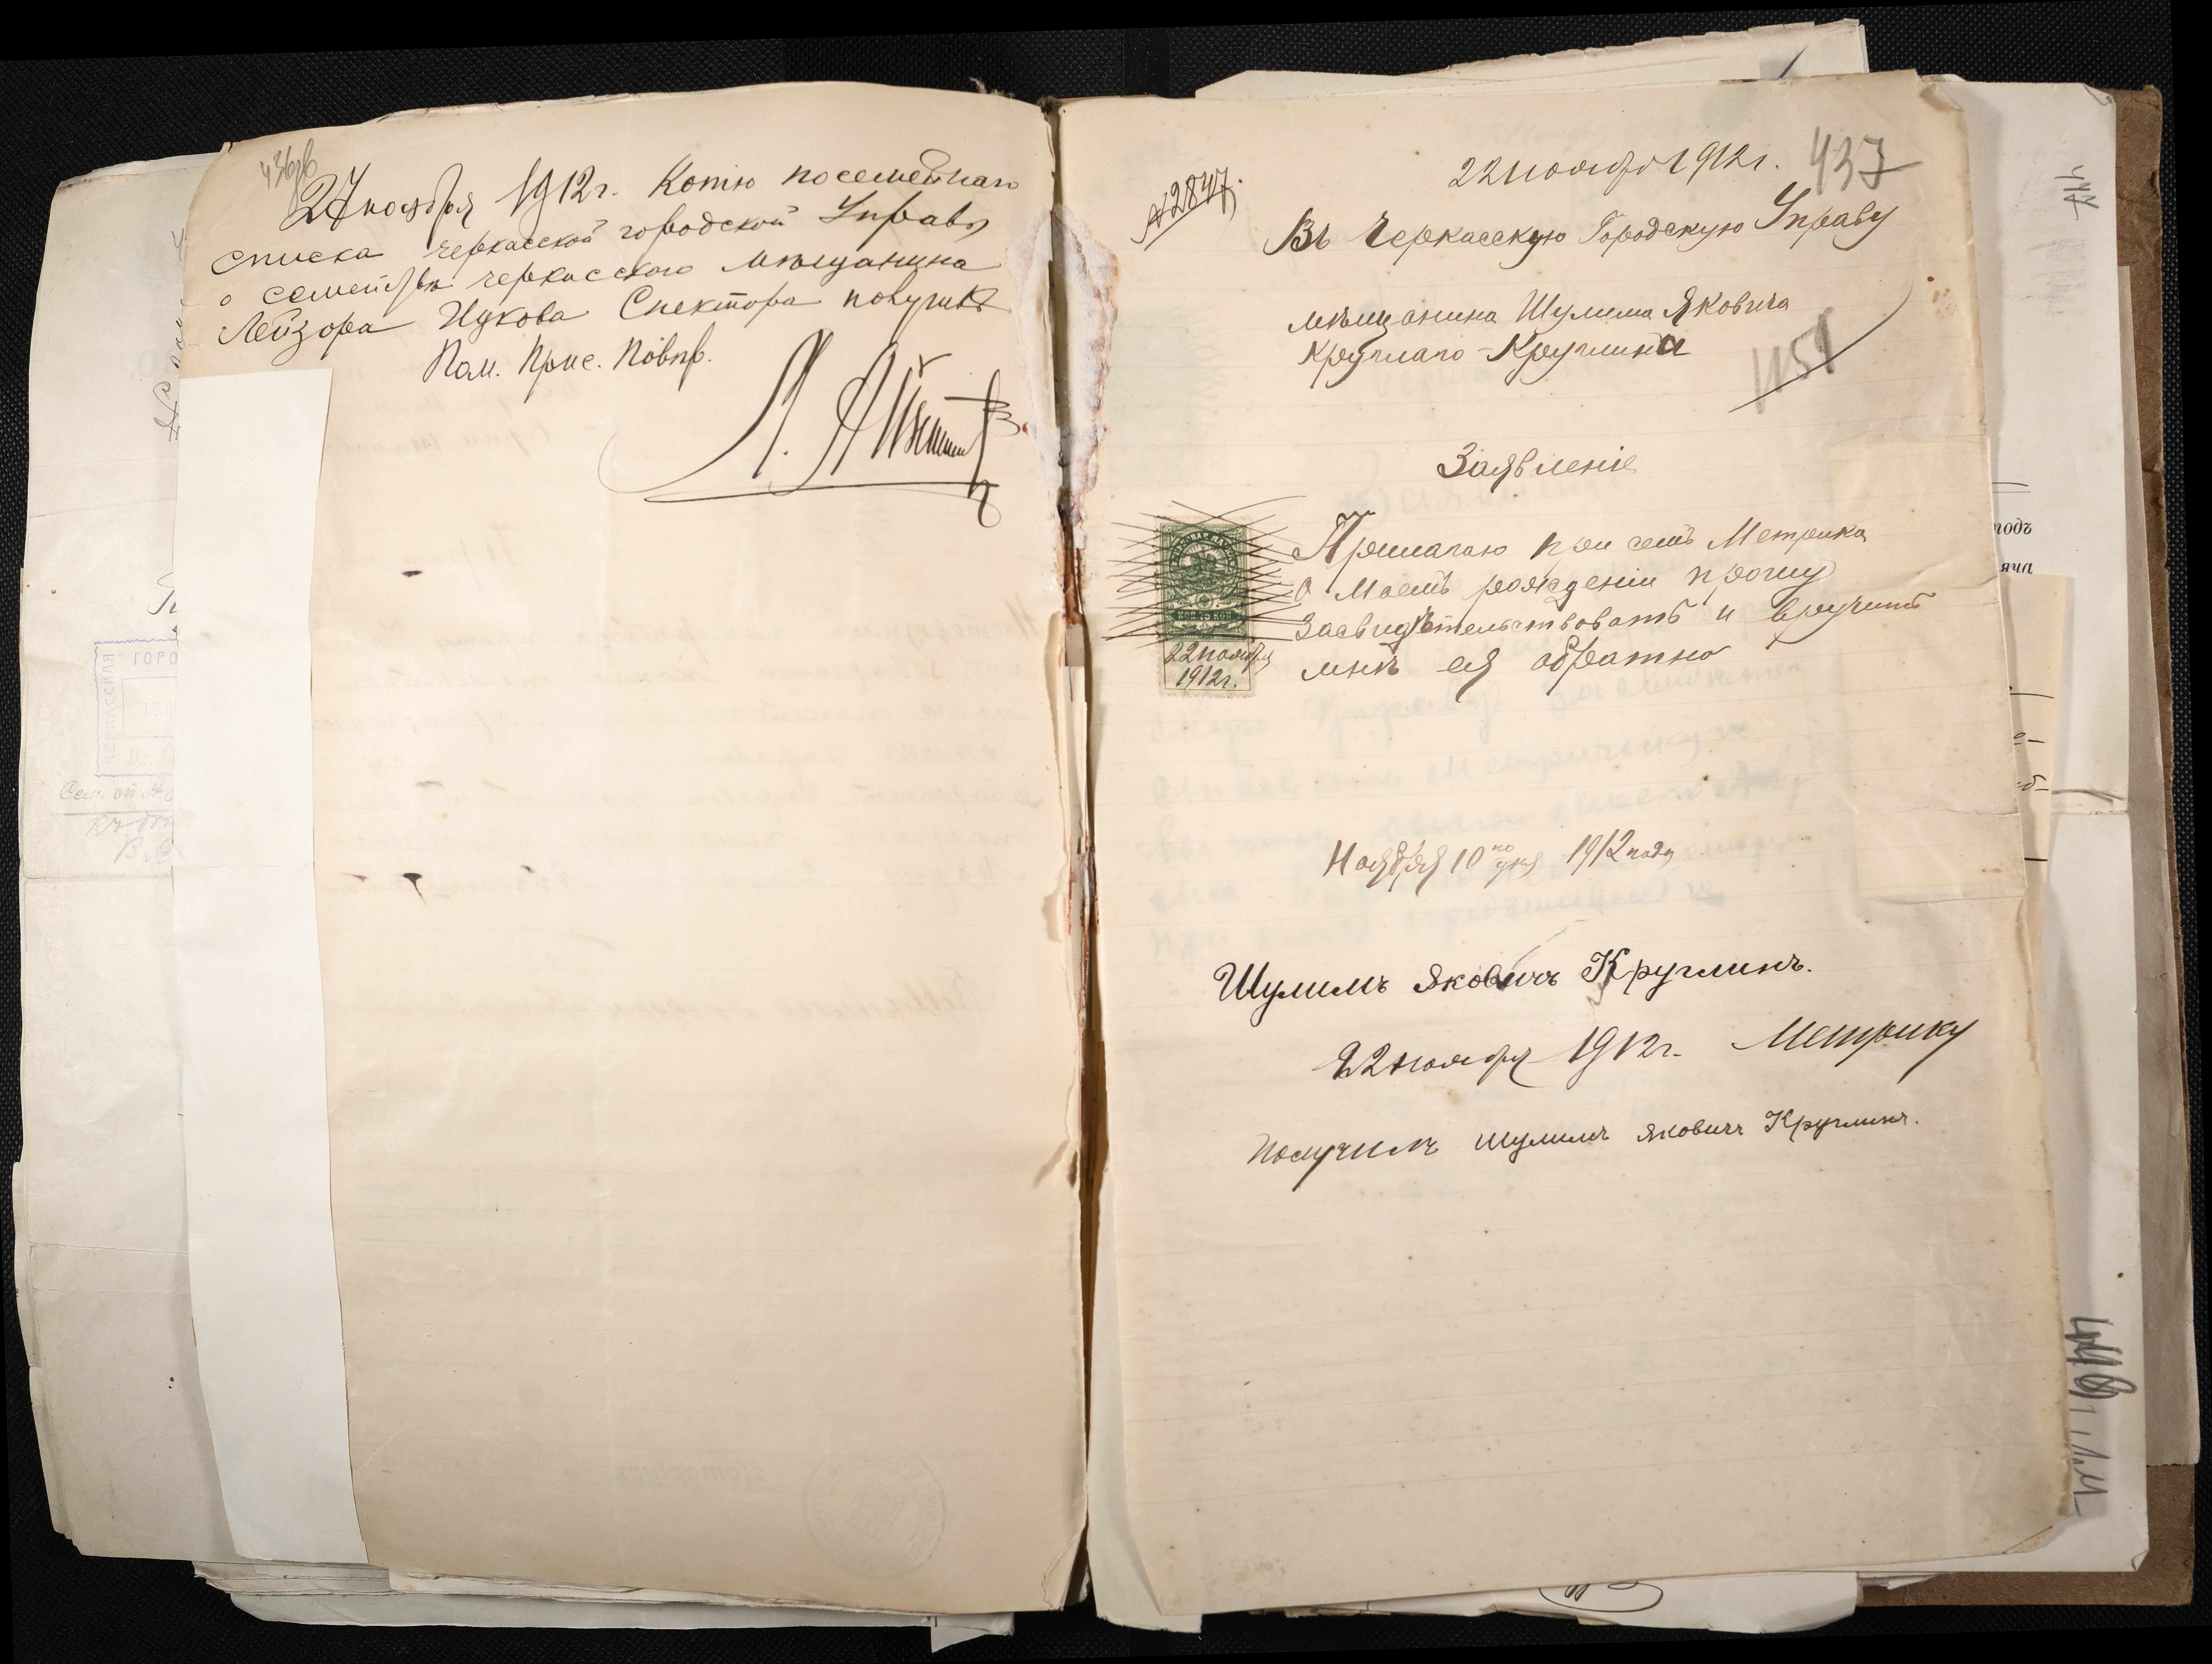 436об
27 ноября 1912 г. Копію посемейнаго
списка черкасской городской Управы
о семействѣ черкасскаго мѣщанина
Лейзора Ицкова Спектора получилъ
Пом. Прис. Повѣр.
22 ноября 1912 г. 437
№2847.
Въ Черкасскую Городскую Управу
мѣщанина Шулима Яковича
Круглаго-Круглина
1151
Заявленіе
Прилагаю при семъ Метрика
о Моемъ рожденіи прошу
Засвидѣтельствовать и вручить
мнѣ ея обратно
22 ноября
1912 г.
Ноября 10 го дня 1912 году
Шулимъ Яковичъ Круглинъ.
22 ноября 1912 г. Метрику
получилъ Шулимъ Яковичъ Круглинъ.
ГОРО
годъ
яча